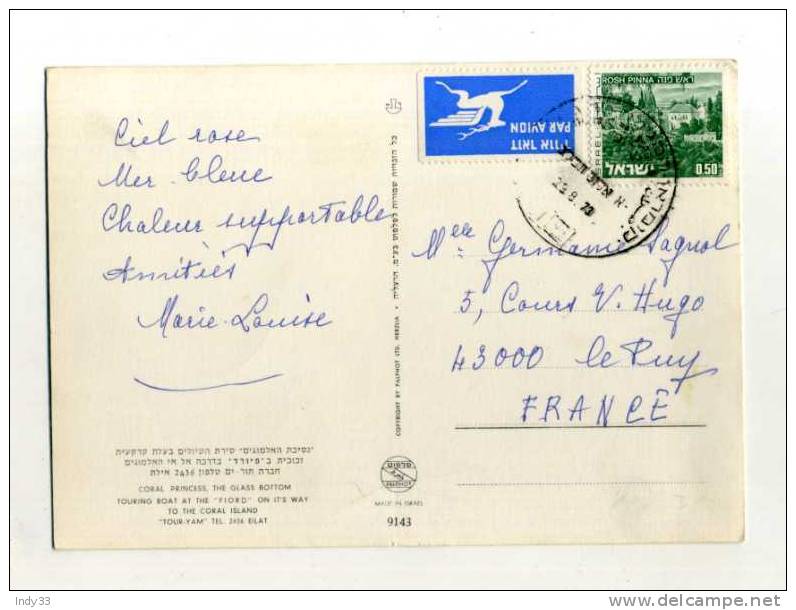 Ciel rose
Mer bleue
Chaleur supportable
Amitiés
Marie-Louise
"נסיכת האלמוגים" סירת הטיולים בעלת קרקעית
זכוכית ב"פיורד" בדרכה אל אי האלמוגים
חברת תור-ים טלפון 2436 אילת
CORAL PRINCESS, THE GLASS BOTTOM
TOURING BOAT AT THE "FIORD" ON IT'S WAY
TO THE CORAL ISLAND
"TOUR-YAM" TEL. 2436 EILAT
כל הזכויות שמורות לפלפוט בע"מ, הרצליה
COPYRIGHT BY PALPHOT LTD. HERZLIA
פלפוט
PALPHOT
MADE IN ISRAEL
9143
דואר אויר
PAR AVION
ראש פנה ROSH PINNA
ISRAEL
ישראל
0.50
Mlle Germaine Sagnol
5, Cours V. Hugo
43000 le Puy
FRANCE
Indy33
www.delcampe.net